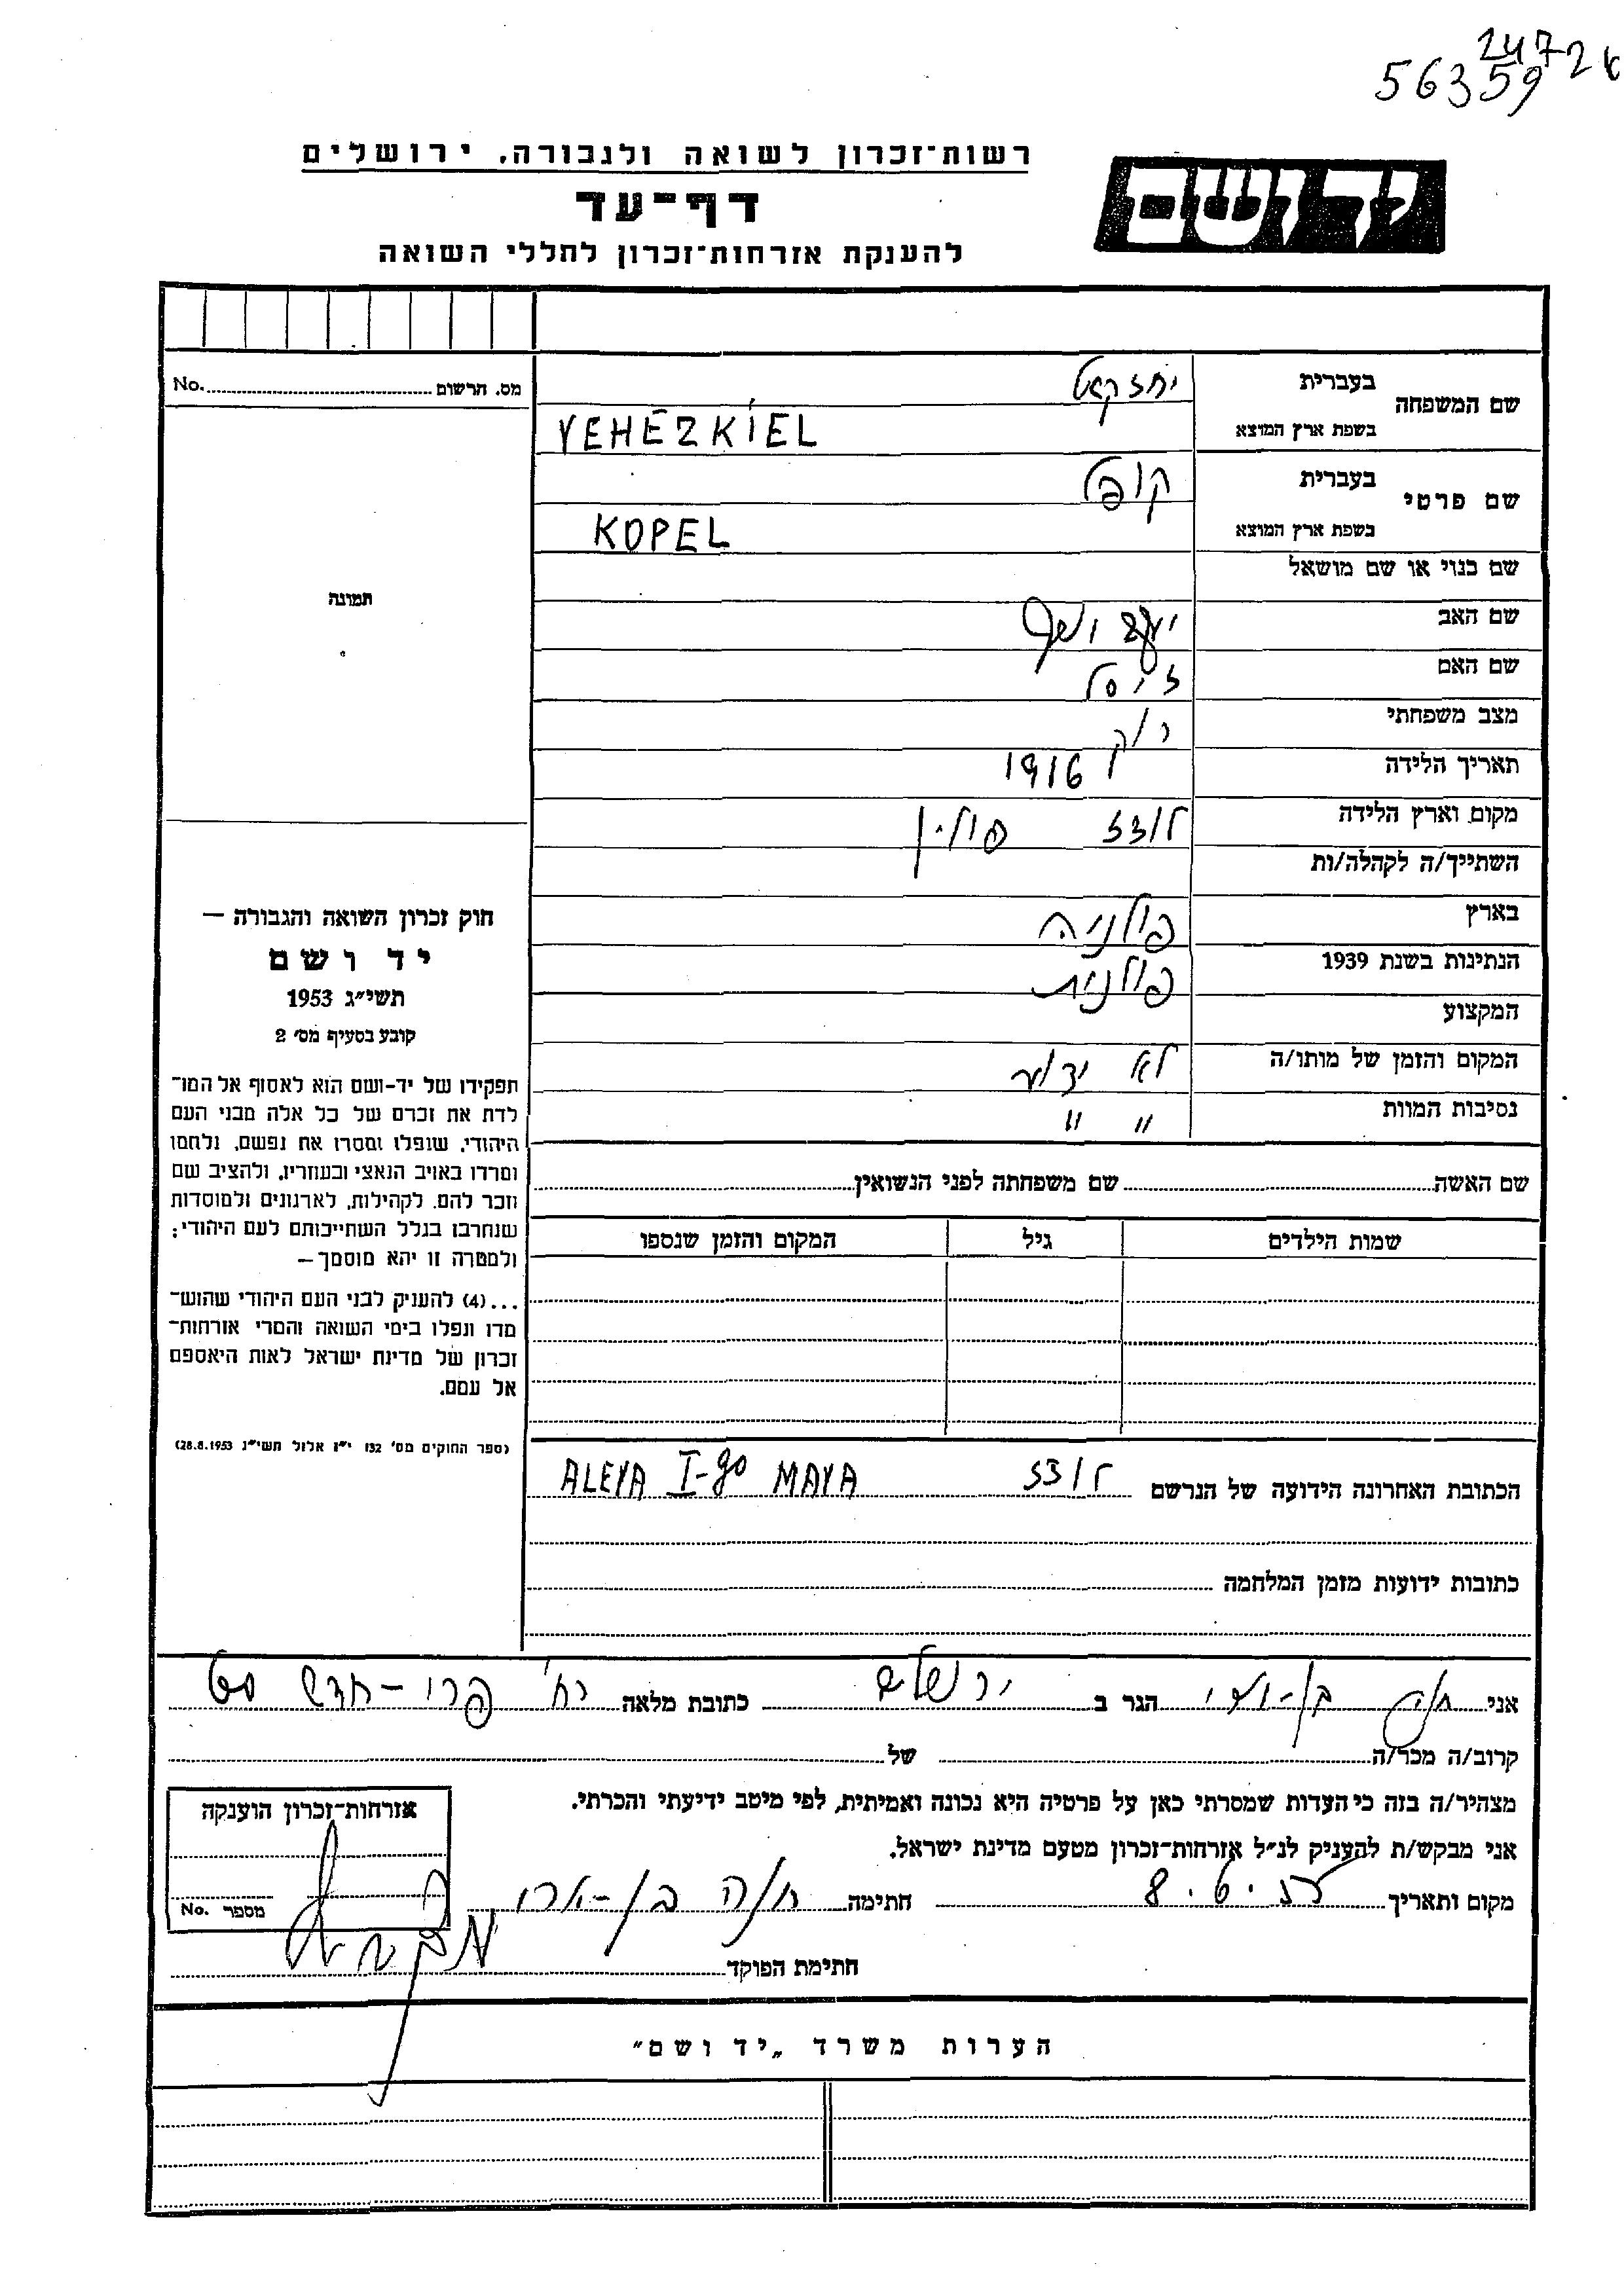 24724
56359
יד ושם
רשות־זכרון לשואה ולגבורה, ירושלים
דף־עד
להענקת אזרחות־זכרון לחללי השואה
מס. הרשום No.
שם המשפחה
בעברית יחזקאל
בשפת ארץ המוצא YEHEZKIEL
שם פרטי
בעברית קופל
בשפת ארץ המוצא KOPEL
שם כנוי או שם מושאל
שם האב ושף
שם האם זיסל
מצב משפחתי רוק
תאריך הלידה 1916
מקום וארץ הלידה לודז פולין
השתייך/ה לקהלה/ות
בארץ פולניה
הנתינות בשנת 1939 פולנית
המקצוע
המקום והזמן של מותו/ה לא ידוע
נסיבות המוות " "
תמונה
חוק זכרון השואה והגבורה —
יד ושם
תשי״ג 1953
קובע בסעיף מס׳ 2
תפקידו של יד-ושם הוא לאסוף אל המו־
לדת את זכרם של כל אלה מבני העם
היהודי, שנפלו ומסרו את נפשם, נלחמו
ומרדו באויב הנאצי ובעוזריו, ולהציב שם
וזכר להם, לקהילות, לארגונים ולמוסדות
שנחרבו בגלל השתייכותם לעם היהודי;
ולמטרה זו יהא מוסמך —
...(4) להעניק לבני העם היהודי שהוש־
מדו ונפלו בימי השואה והמרי אזרחות־
זכרון של מדינת ישראל לאות היאספם
אל עמם.
(ספר החוקים מס׳ 132 י״ז אלול תשי״ג 28.8.1953)
שם האשה שם משפחתה לפני הנשואין
שמות הילדים גיל המקום והזמן שנספו
הכתובת האחרונה הידועה של הנרשם לודז ALEYA I-go MAYA
כתובות ידועות מזמן המלחמה
אני הגר ב ירושלים כתובת מלאה רח׳ פרי-חדש
קרוב/ה מכר/ה של
מצהיר/ה בזה כי העדות שמסרתי כאן על פרטיה היא נכונה ואמיתית, לפי מיטב ידיעתי והכרתי.
אני מבקש/ת להעניק לנ״ל אזרחות־זכרון מטעם מדינת ישראל.
מקום ותאריך 8.6. חתימה
חתימת הפוקד
אזרחות־זכרון הוענקה
מספר No.
הערות משרד „יד ושם״